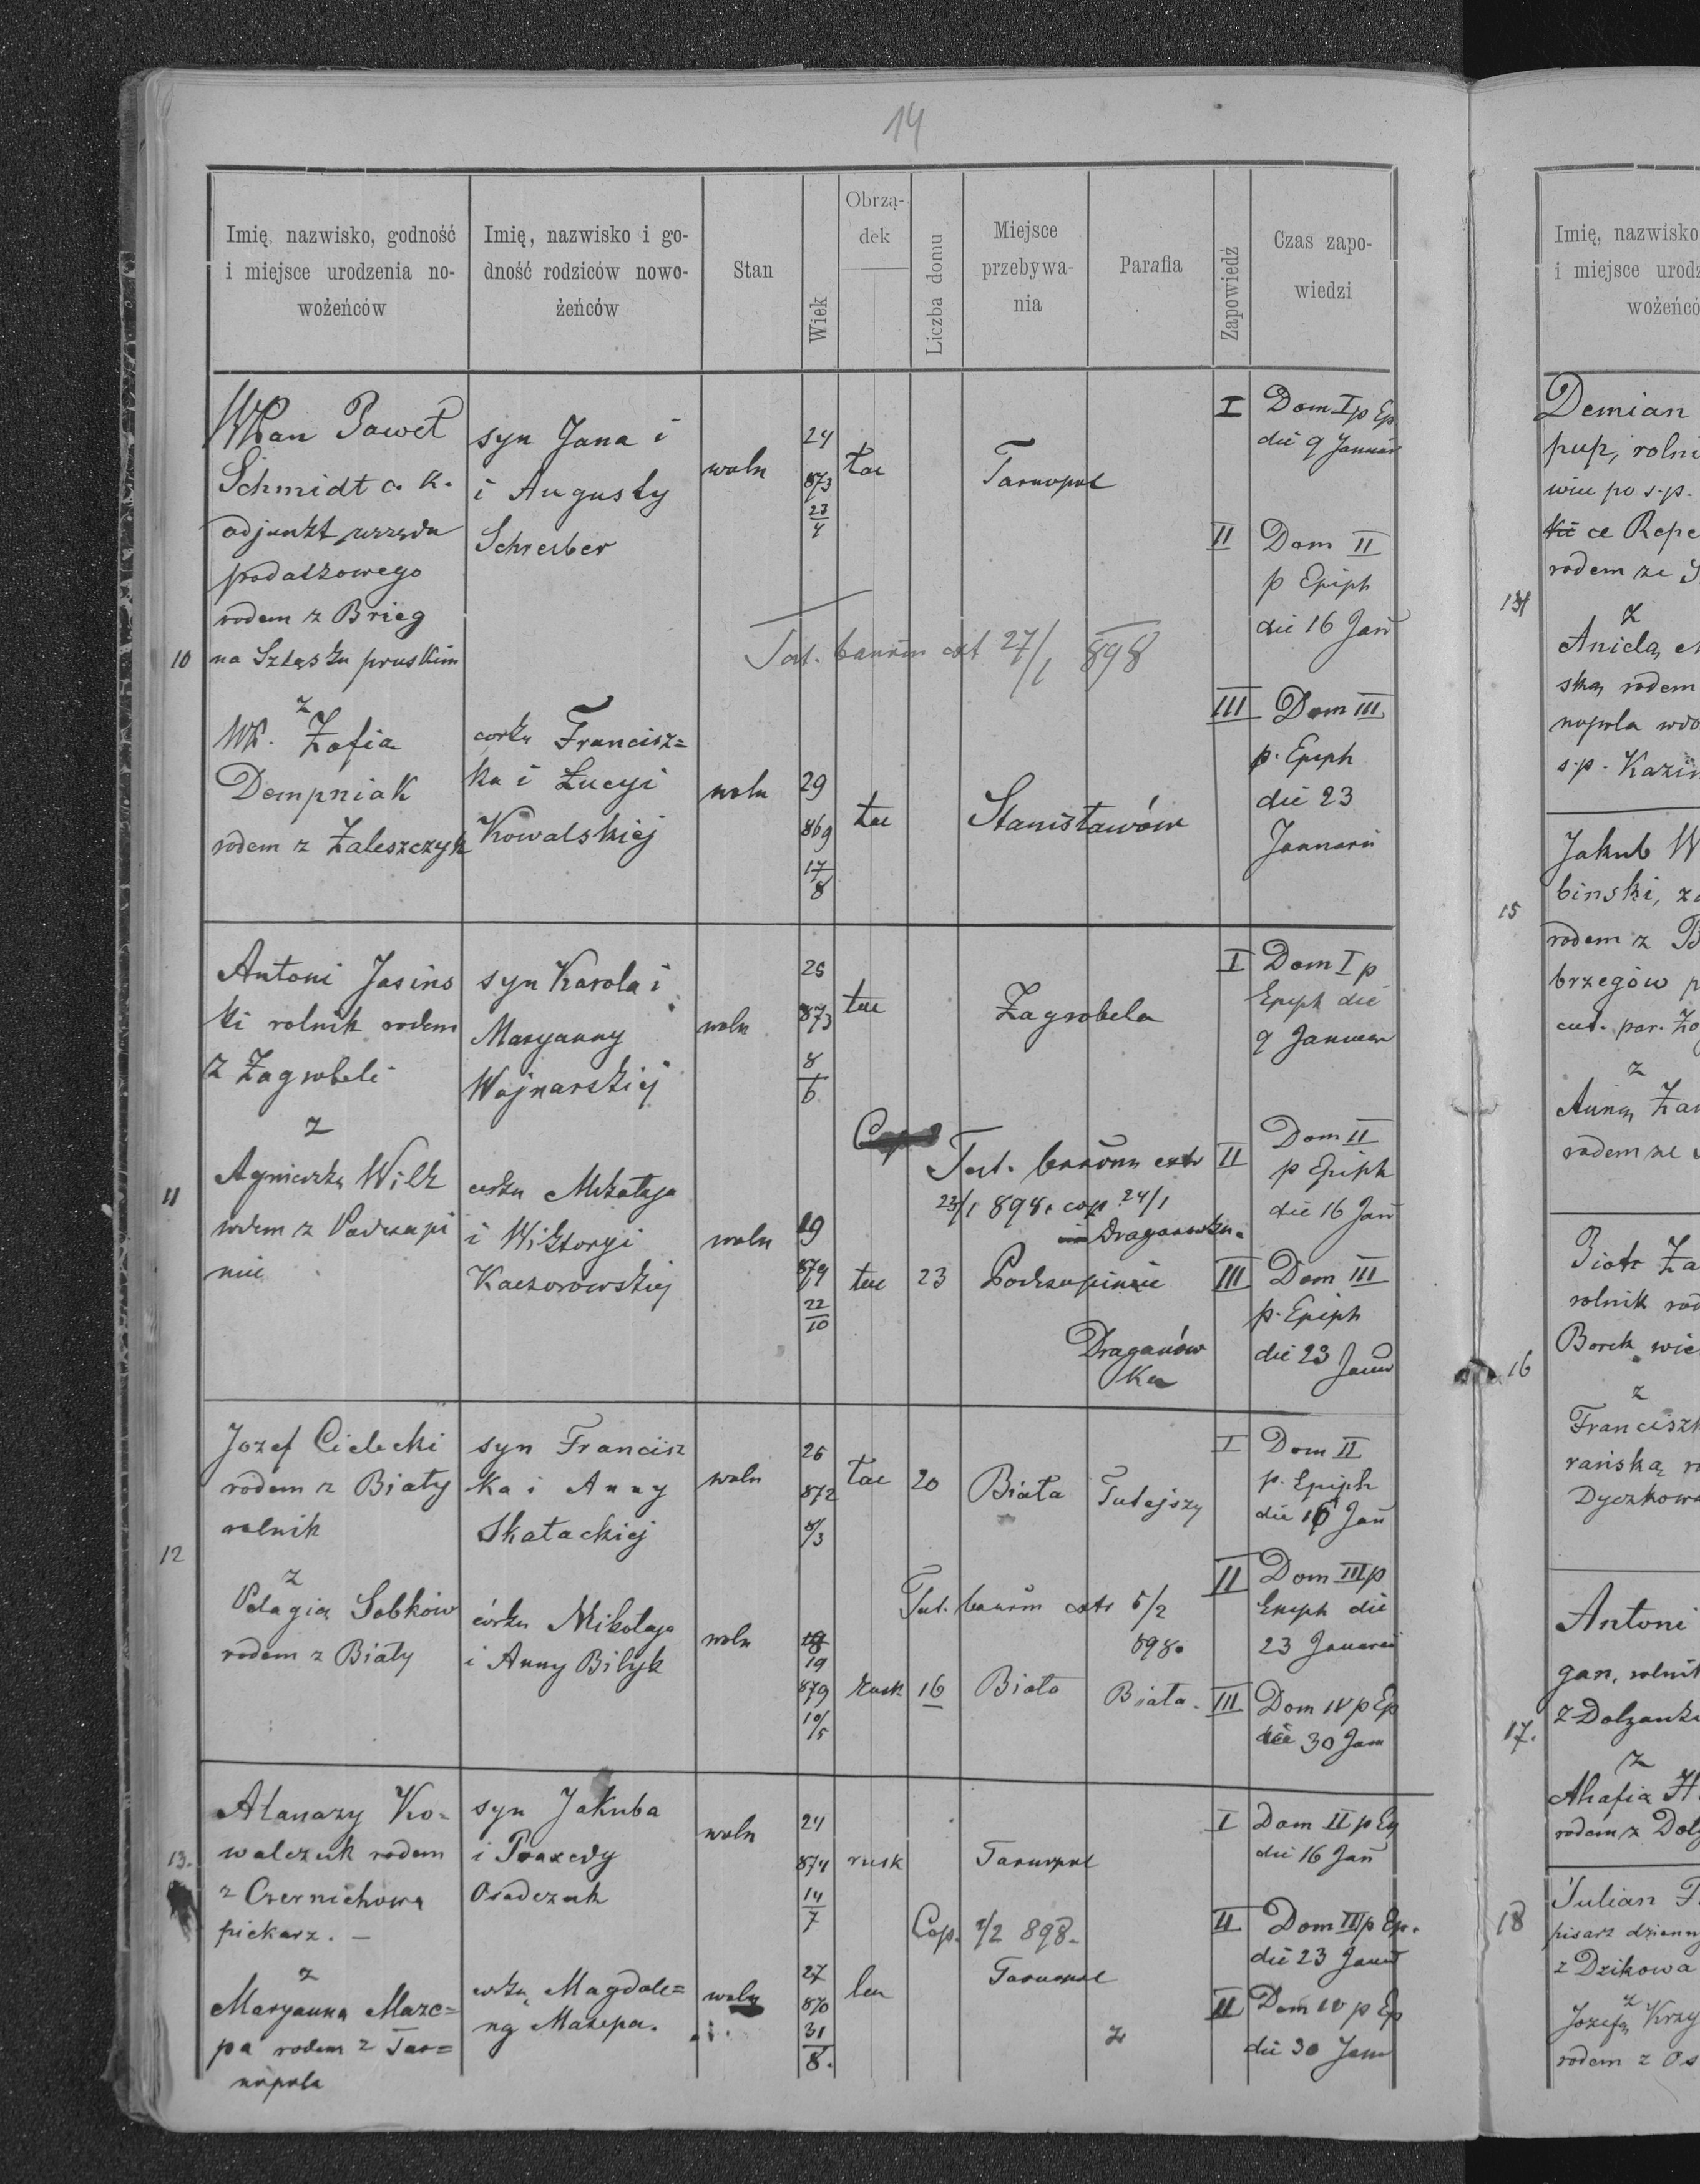 14
Imię, nazwisko, godność
i miejsce urodzenia no-
wożeńców
Imię, nazwisko i go-
dność rodziców nowo-
żeńców
Stan
Wiek
Obrzą-
dek
Liczba domu
Miejsce
przebywa-
nia
Parafia
Zapowiedź
Czas zapo-
wiedzi
10
Pan Paweł
Schmidt c. k.
adjunkt urzędu
podatkowego
rodem z Brieg
na Szląsku pruskim
z
WP. Zofia
Dempniak
rodem z Zaleszczyk
syn Jana i
i Augusty
Schreiber
córka Francisz=
ka i Łucyi
Kowalskiej
woln
woln
24
873
23/4
29
869
17/8
łac
łac
Tarnopol
Test. bannm ext 27/1 898
Stanisławów
I Dom I p Ep
die 9 Januar
II Dom II
p Epiph
die 16 Jan
III Dom III
p. Epiph
die 23
Januarii
11
Antoni Jasins
ki rolnik rodem
z Zagrobeli
z
Agnieszka Wilk
rodem z
nie
syn Karola i
Maryanny
Wojnarskiej
córka Mikołaja
i Wiktoryi
Kaczorowskiej
woln
woln
25
873
8/6
19
879
22/10
łac
łac 23
Zagrobela
Cop
Test. bannm extr
23/1 898. cop 24/1
Draganówka.
Draganów
ka
I Dom I p
Epiph die
9 Januar
II Dom II
p Epiph
die 16 Jan
III Dom III
p. Epiph
die 23 Janu
12
Jozef Cielecki
rodem z Biały
rolnik
z
Pelagia Sobków
rodem z Biały
syn Francisz
ka i Anny
Skałackiej
córka Mikołaja
i Anny Bilyk
woln
woln
26
872
8/3
18
19
879
10/5
łac 20 Biała Tutejszy
Test. bannm extr 5/2
898.
rusk 16 Biała Biała.
I Dom II
p. Epiph
die 16 Jan
II Dom III p
Epiph die
23 Januarii
III Dom IV p Ep
die 30 Jan
13.
Atanazy Ko=
walczuk rodem
z Czernichowa
piekarz. —
z
Maryanna Maze=
pa rodem z Tar=
nopola
syn Jakuba
i Praxedy
Osadczuk
córka Magdale=
ny Mazepa.
woln
woln
24
874
14/7
27
870
31/8.
rusk
łac
Tarnopol
Cop. 1/2 898.
Tarnopol
I Dom II p Ep
die 16 Jan
II Dom III p Ep.
die 23 Janu
II Dom IV p Ep
die 30 Jan
Imię, nazwisko
i miejsce urodz
wożeńcó
Demian
pup, rolni
wiec po s.p.
ce Repe
rodem ze
z
Anielą
ską rodem
nopola wdo
s.p. Kazi
Jakub W
15
binski,
rodem z B
brzegów p
z
Anną Za
rodem ze
Piotr Za
rolnik rod
Borek wie
16
z
Franciszk
rańską ro
Dyczkowa
Antoni
gan, rolnik
17.
z Dolżanki
z
Ahafia H
rodem z Dolż
Julian
18
pisarz dzienny
z Dzikowa
z
Jozefą Krzy
rodem z Os